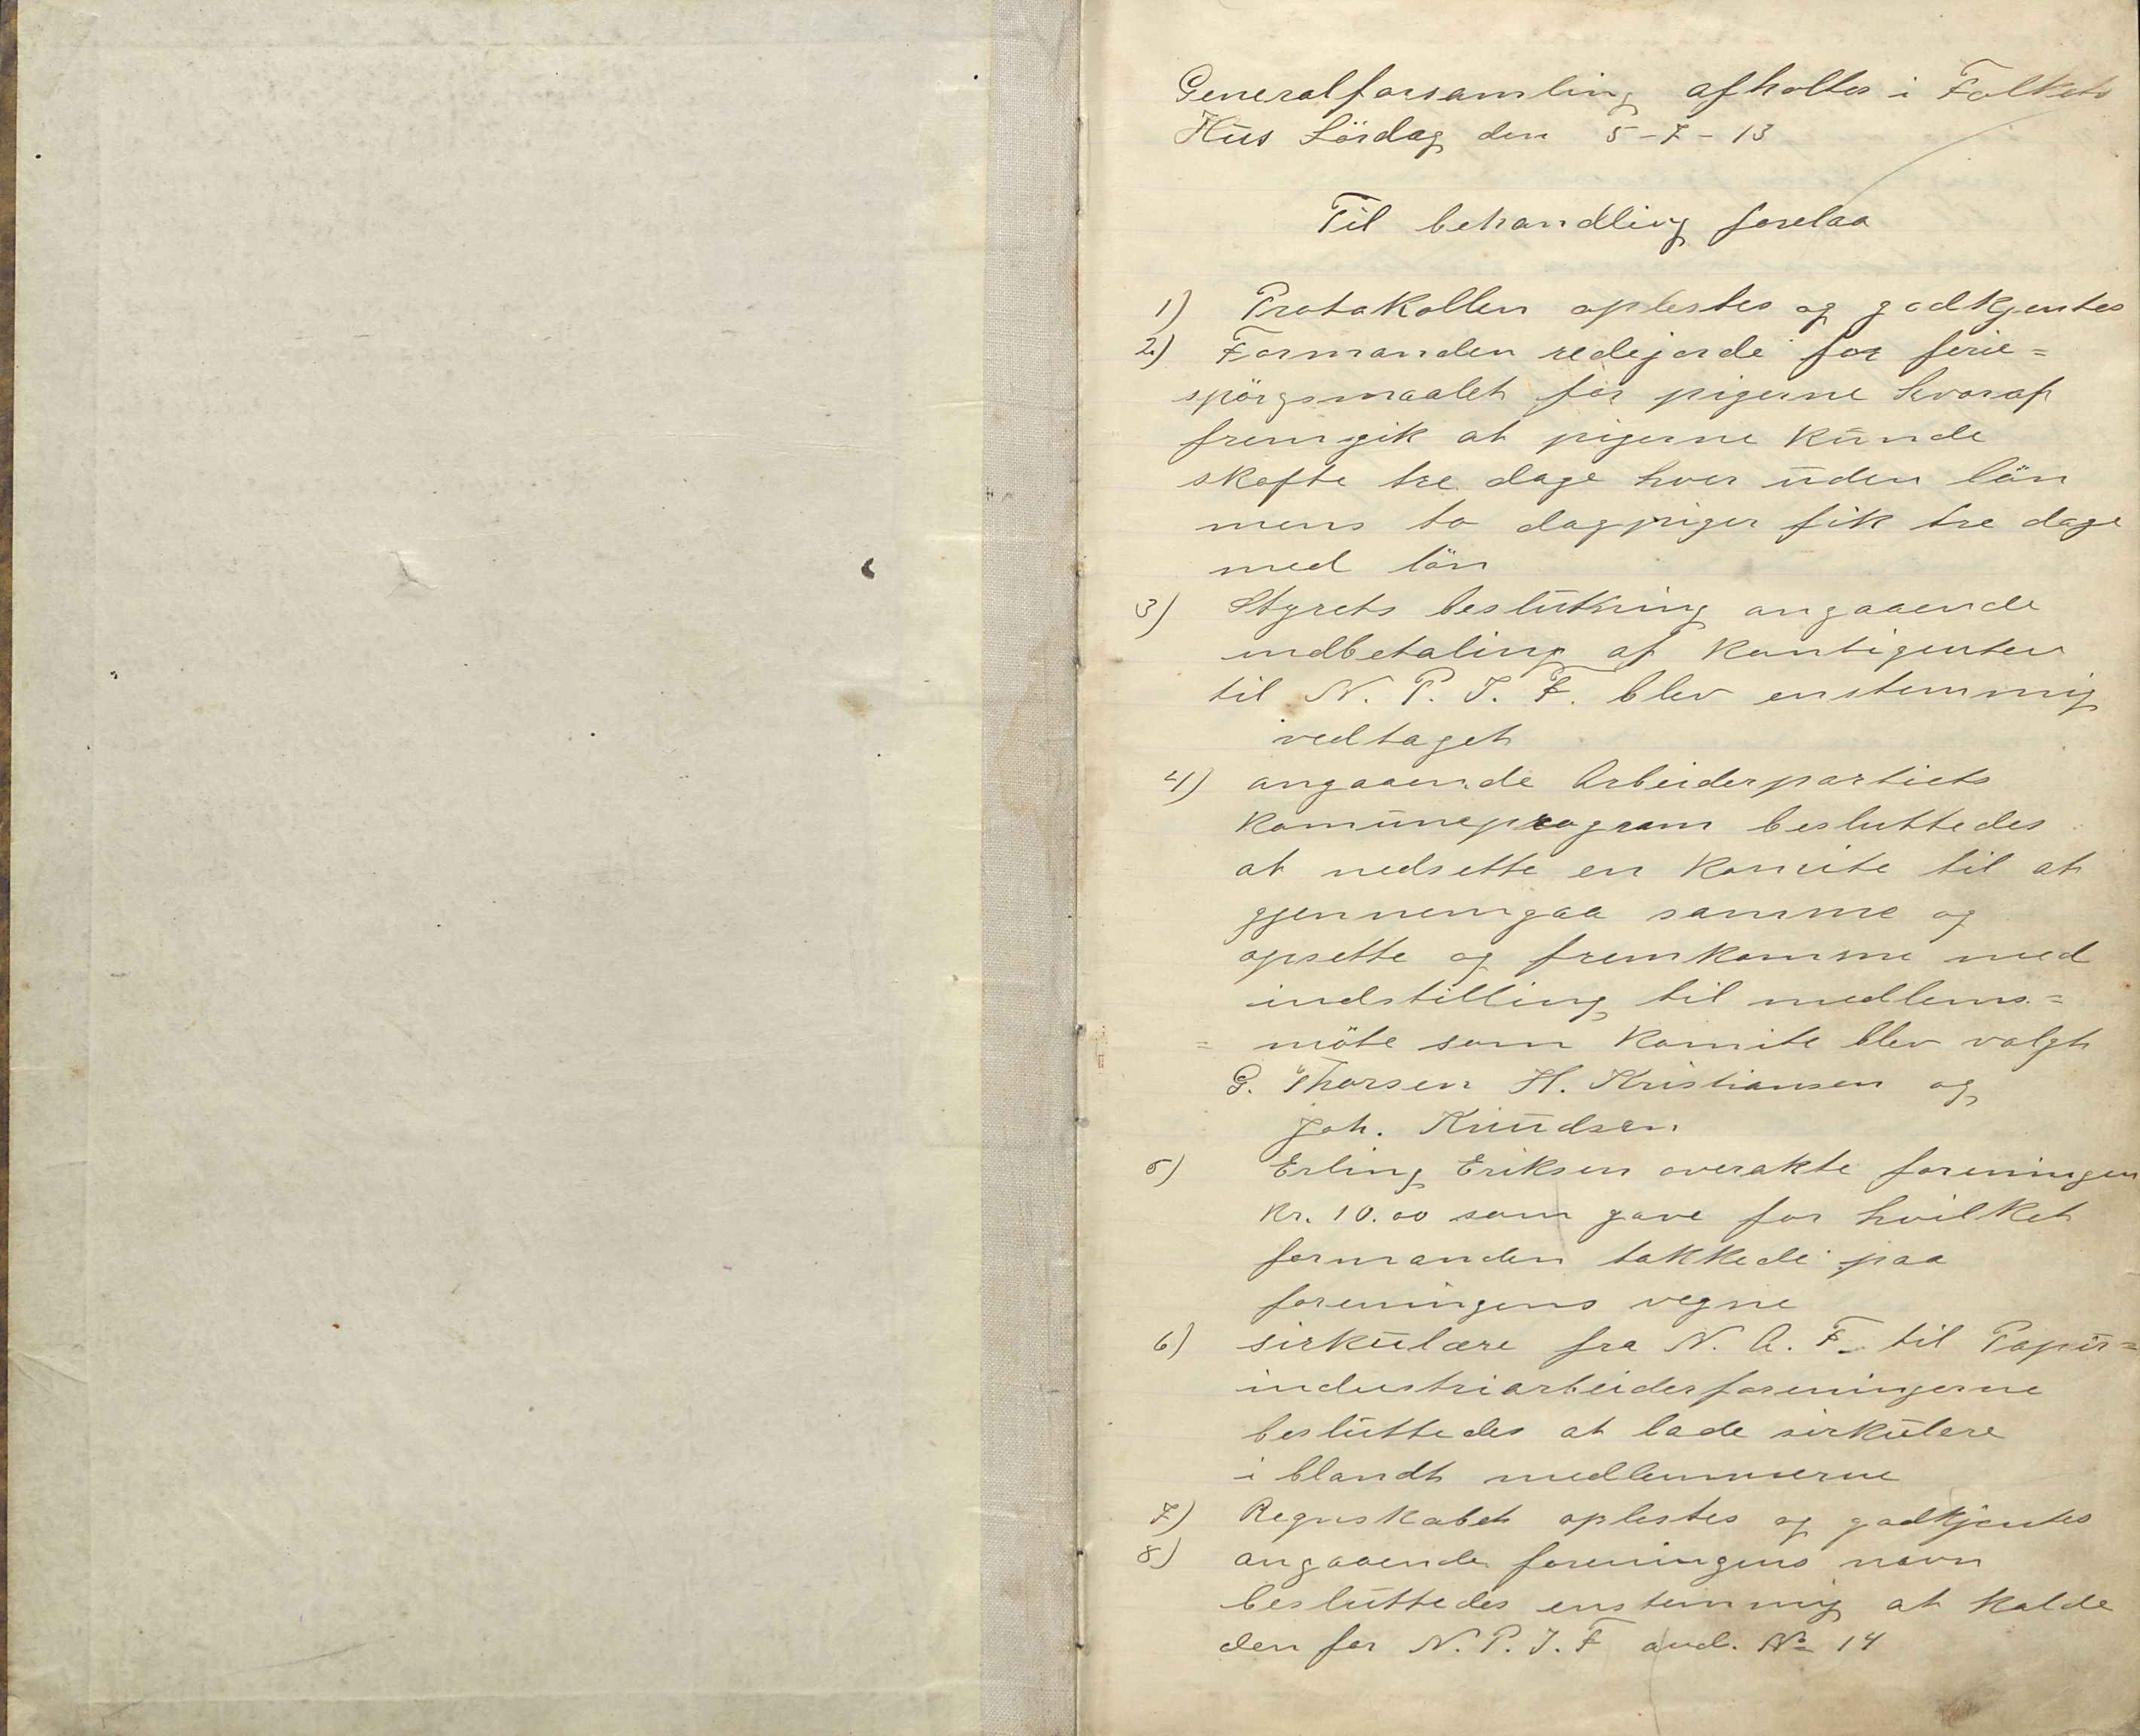 Generalforsamling afholtes i Folkets
Hus Lördag den 5-7-13
Til behandling forelaa
1) Protokollen oplestes og godkjentes
2) Formanden redejorde for ferie=
spörgsmaalet for pigerne hvoraf
fremgik at pigerne kunde
skofte tre dage hver uden lön
mens to dagpiger fik tre dage
med lön
3) Styrets beslutning angaaende
indbetaling af kontigenten
til N. P. I. F. blev enstemmig
vedtaget
4) angaaende Arbeiderpartiets
komuneprogram besluttedes
at nedsette en komite til at
gjennemgaa samme og
opsette og fremkomme med
indstilling til medlems=
= möte som komite blev valgt
G. Thorsen H. Kristiansen og
Joh. Knudsen
5) Erling Eriksen overakte foreningen
kr. 10.00 som gave for hvilket
formanden takkede paa
foreningens vegne
6) sirkulære fra N. A. F. til Papir=
industriarbeiderforeningerne
besluttedes at lade sirkulere
i blandt medlemmerne
7) Regnskabet oplestes og godkjentes
8) angaaende foreningens navn
besluttedes enstemmig at kalde
den for N. P. I. F avd. No 14